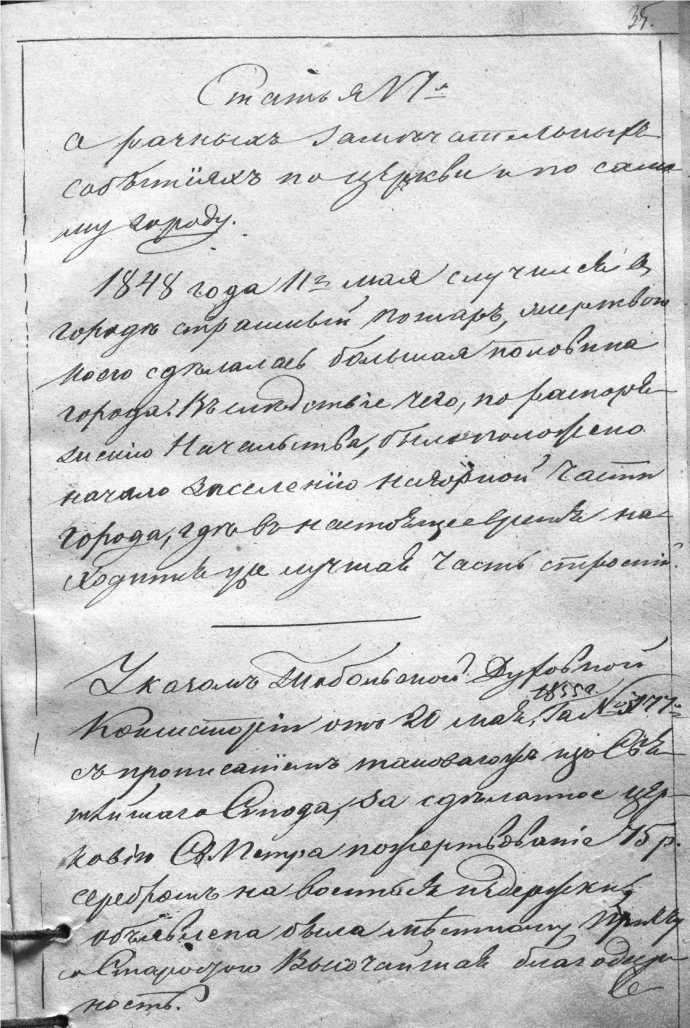 35.
Статья VIя
о разныхъ замѣчательныхъ
событіяхъ по церкви и по само-
му городу.
1848 года 11го мая случился въ
городѣ страшный пожаръ, жертвою
коего сдѣлалась большая половина
города. Въ слѣдствіе чего, по распоря-
женію Начальства, было положено
начало заселенію нагорной части
города, гдѣ въ настоящее время на-
ходится уже лучшая часть строеній.
Указомъ Тобольской Духовной
Консисторіи отъ 20 мая 1855 г. за №
съ прописаніемъ таковаго же изъ Свя-
тѣйшаго Синода, за сдѣланное цер-
ковію Св. Петра пожертвованіе 75 р.
серебромъ на военныя издержки,
объявлена была мѣстному Причту
и Старостѣ Высочайшая благодар-
ность.